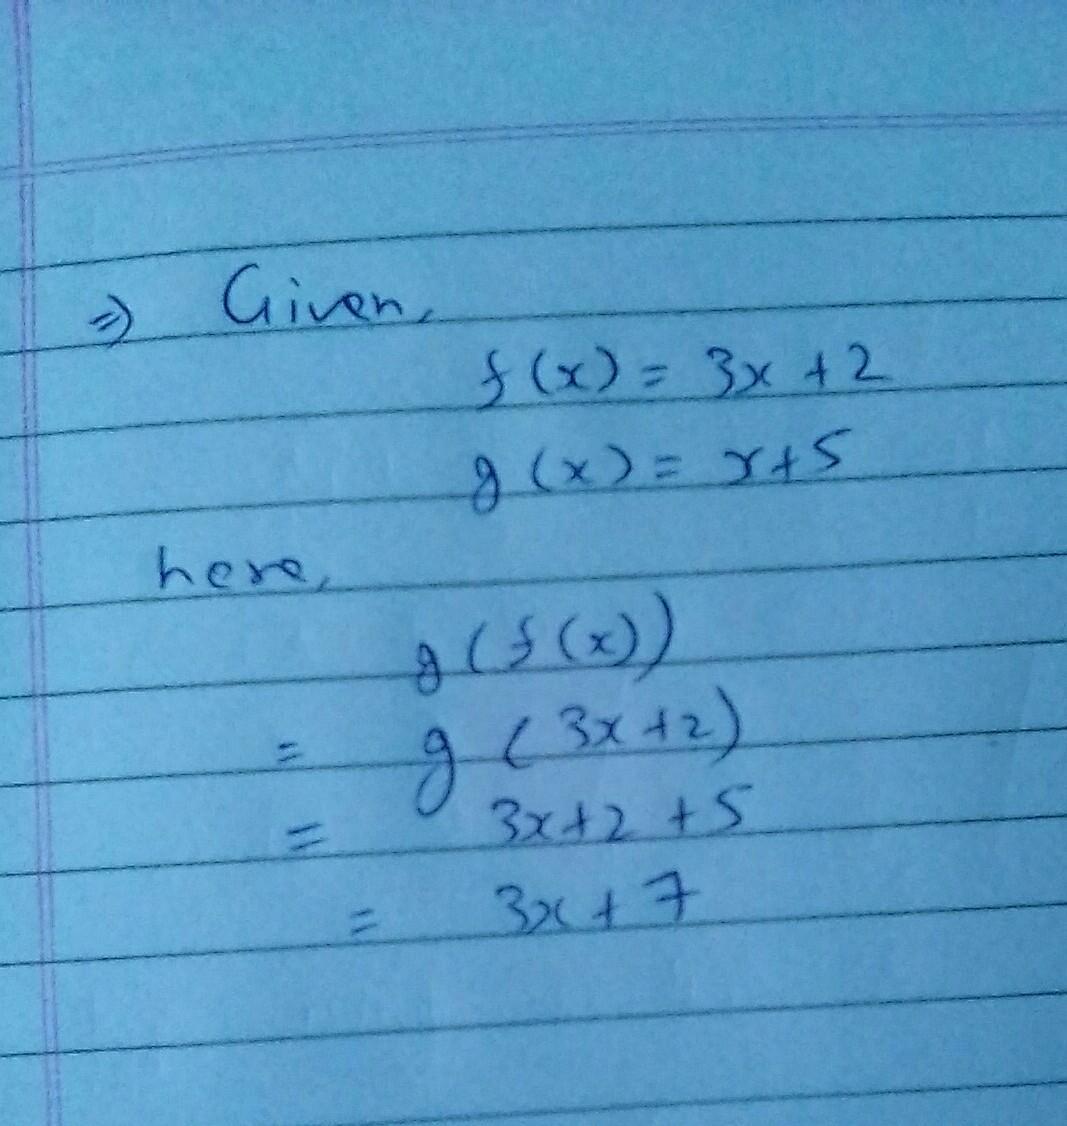 ⇒ Given,
f(x) = 3x + 2
g(x) = x+5
here,
g(f(x))
= g(3x+2)
= 3x+2+5
= 3x+7